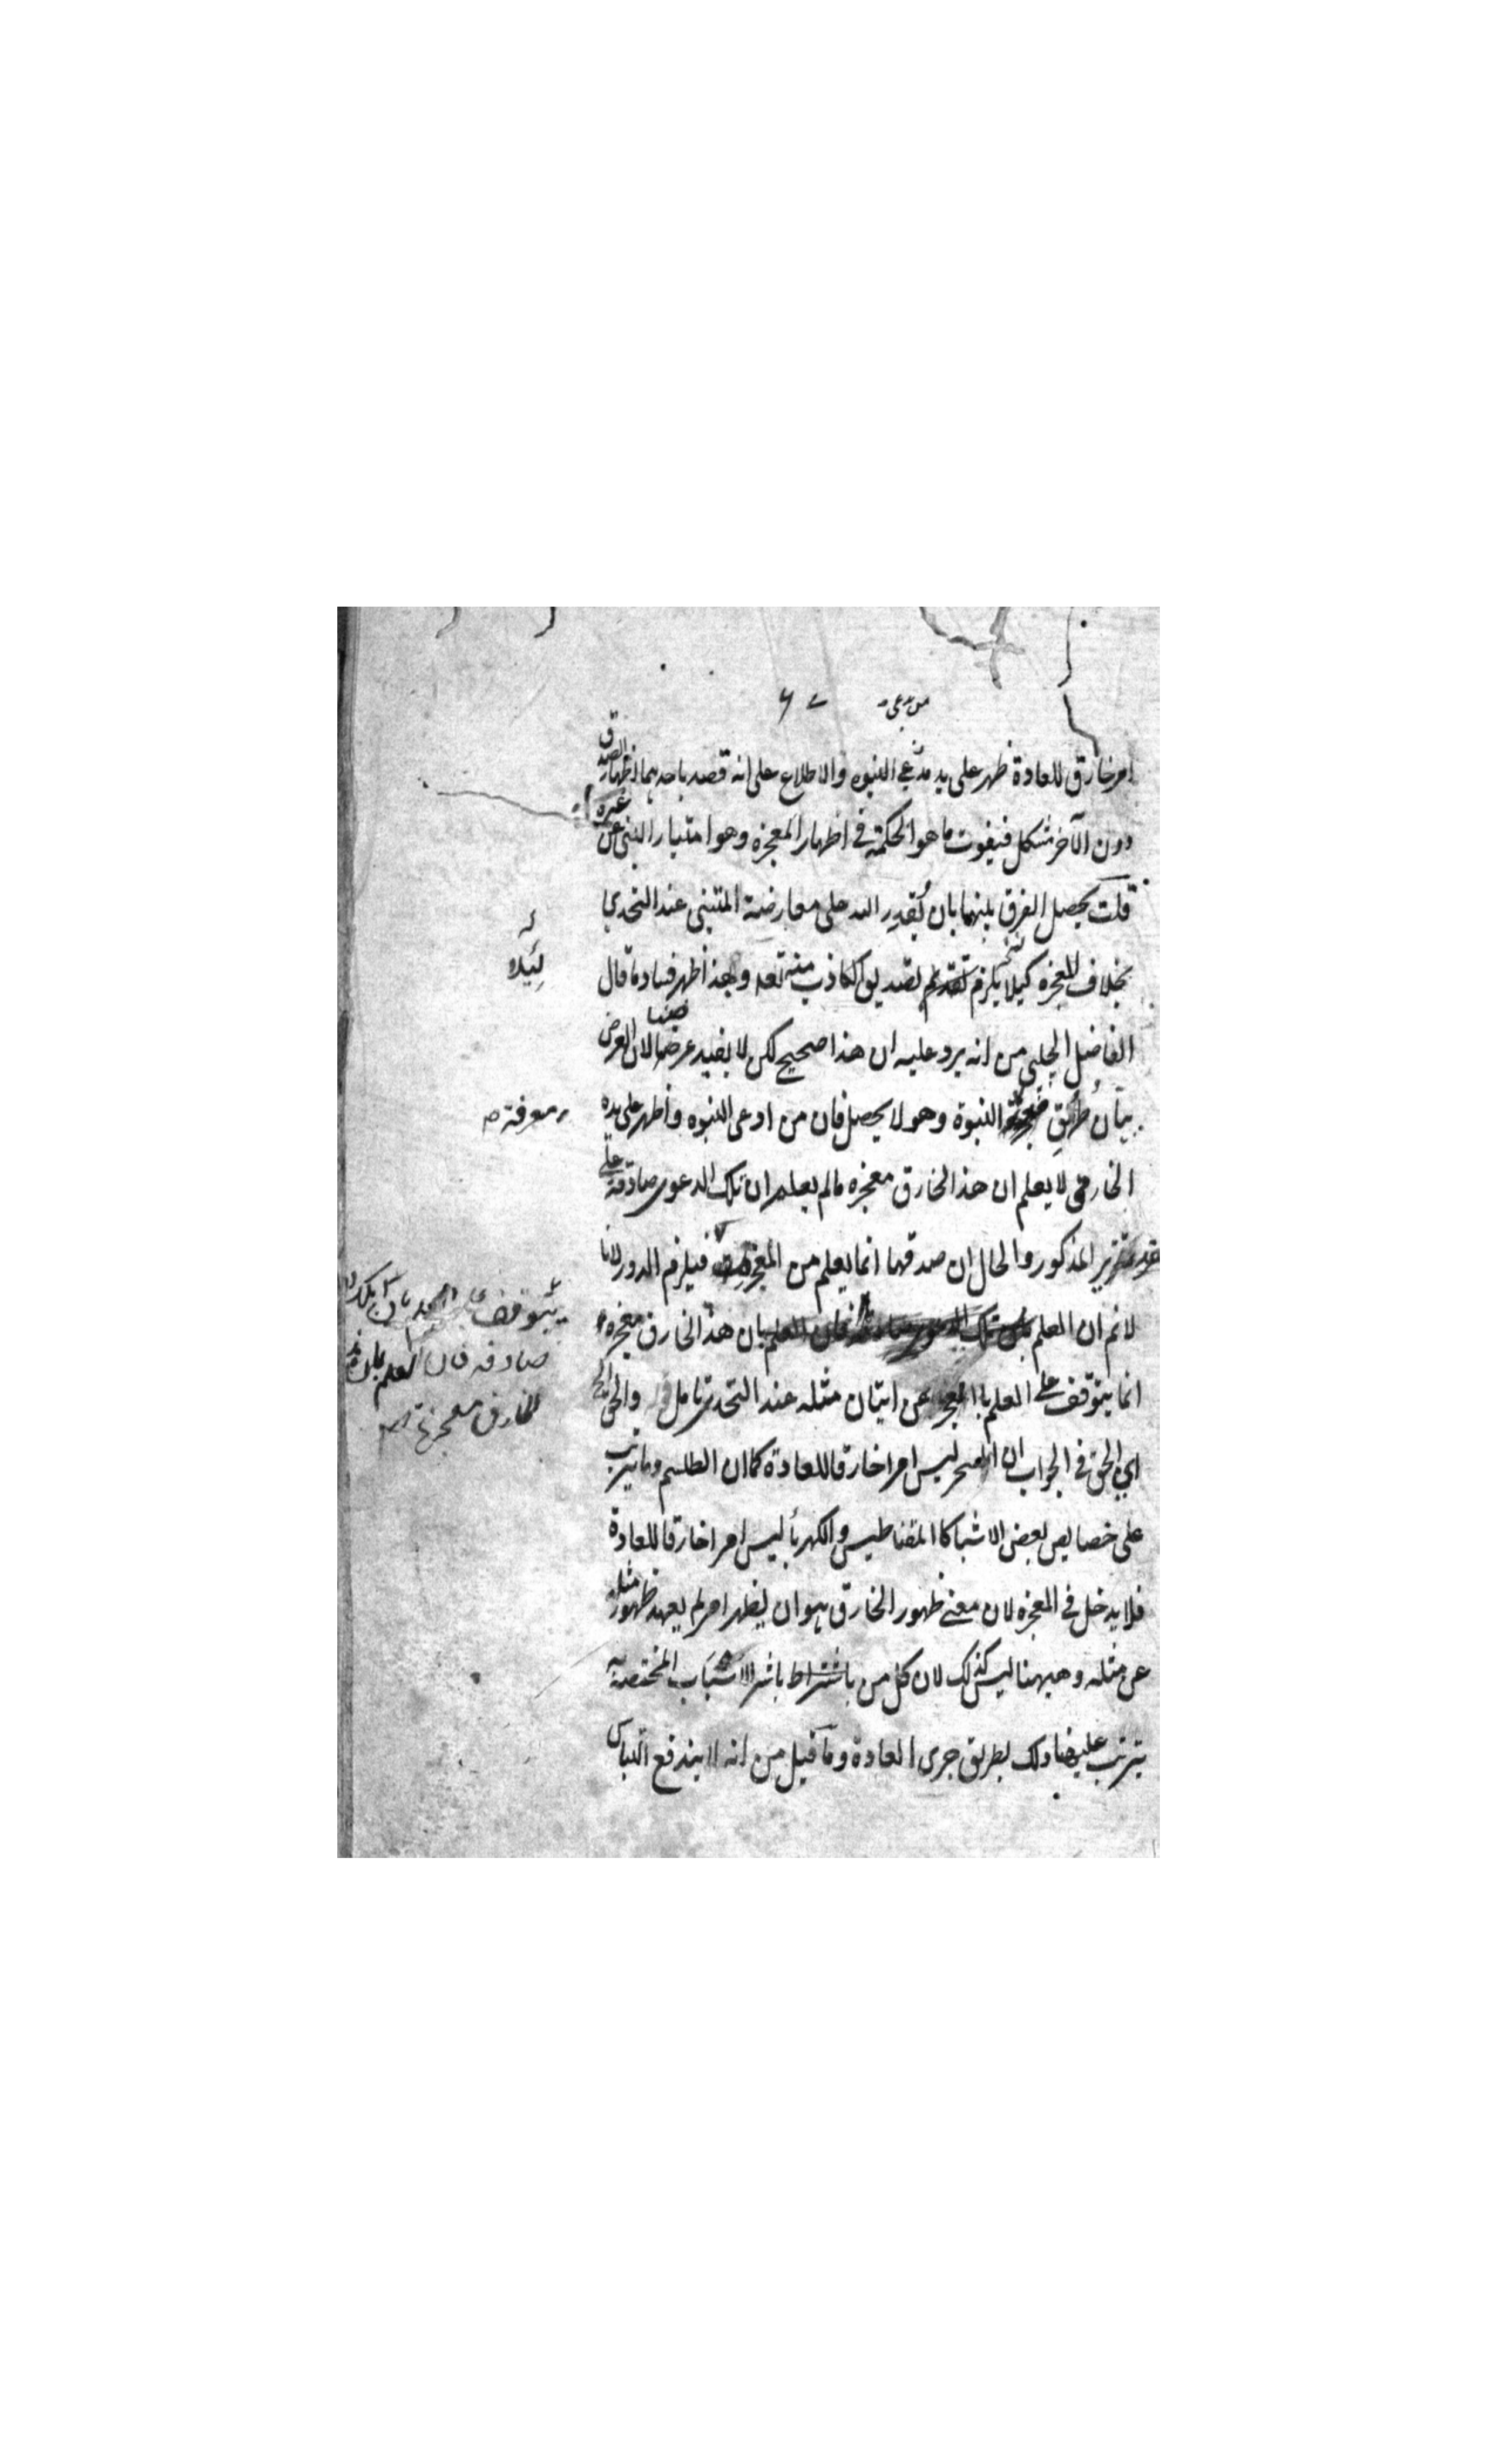 امر خارق للعادة ظهر على يد مدعي النبوه والاطلاع على انه قصد باحدهما اظهار الصدق
دون الآخر مشكل فيفوت ما هو الحكمة في اظهار المعجزه وهو امتياز النبي عن غيره
قلت يحصل الفرق بينهما بان يُقدِر الله على معارضة المتنبى عند التحدي
بخلاف المعجزه كيلا يلزم تصديق الكاذب منه تعه وبهذا ظهر فساد ما قال
الفاضل الجلبي من انه يرد عليه ان هذا صحيح لكن لا يفيد عرضنا لان العرض
بيان طريق النبوة وهو لا يحصل فان من ادعى النبوه وأظهر على يده
معرفة صح
الخارق لا يعلم ان هذا الخارق معجزه مالم يعلم ان تلك الدعوى صادقة على
المذكور والحال ان صدقها انما يعلم من المعجزه فيلزم الدور لانا
لانم ان العلم بان هذا الخارق معجزه
يتوقف على العلم بان تلك
صادقه فان العلم بان هذا
الخارق معجزة صح
انما يتوقف على العلم بالعجز عن اتيان مثله عند التحدى تامل والحق
اي الحق في الجواب ان السحر ليس امرا خارقا للعادة كما ان الطلسم وما يترتب
على خصايص بعض الاشيا كالمقناطيس والكهربأ ليس امرا خارقا للعادة
فلا يدخل في المعجزه لان معنى ظهور الخارق هو ان يظهر امر لم يعهد ظهور مثله
عن مثله وههنا ليس كذلك لان كل من باشر الاسباب المختصة به
يترتب عليها ذلك بطريق جرى العادة وما قيل من انه لا يندفع التباس